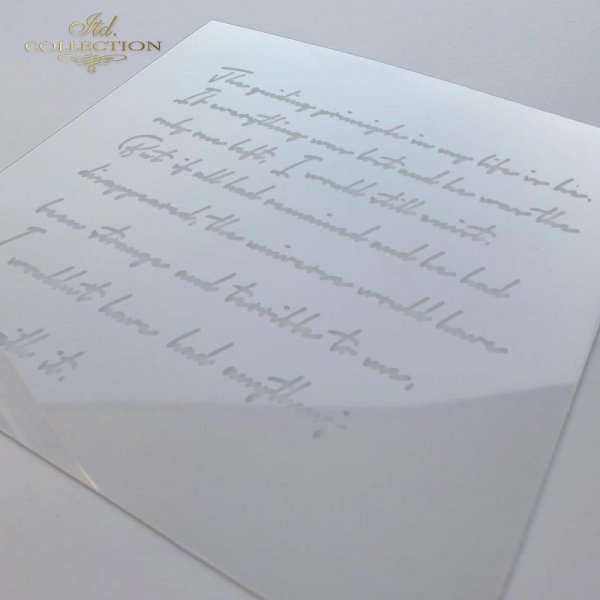 Itd.
COLLECTION
The guiding principle in my life is he.
If everything was lost and he was the
only one left, I would still exist.
But if all had remained and he had
disappeared, the universe would have
been strange and terrible to me,
I wouldn't have had anything
with it.